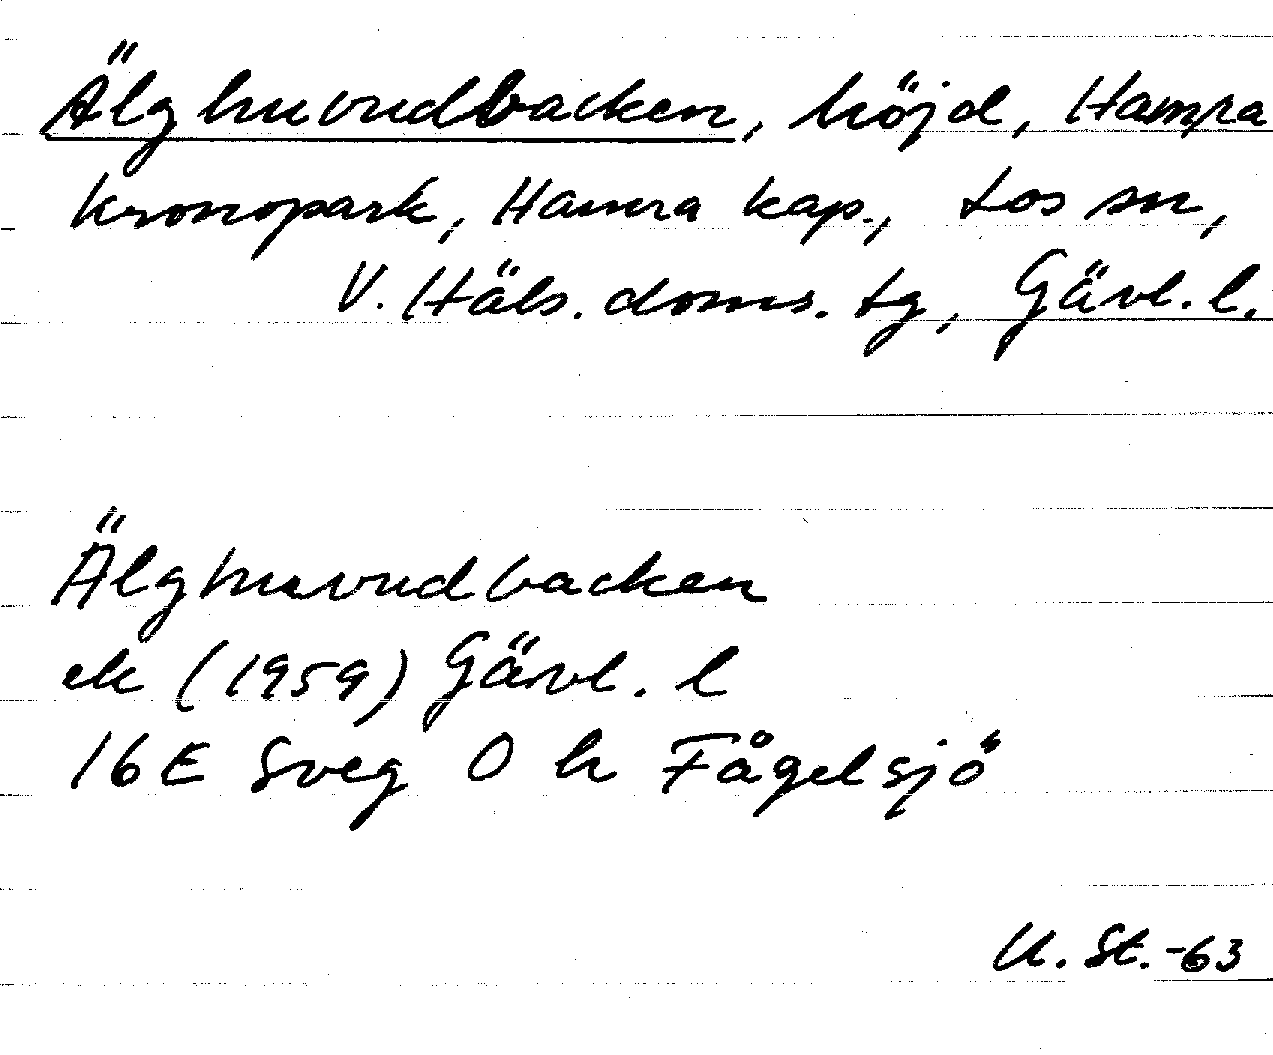 Älghuvudbacken, höjd, Hamra
kronopark, Hamra kap., Los sn,
V. Häls. doms. tg, Gävl. l.
Älghuvudbacken
ek (1959) Gävl. l
16E Sveg 0 h Fågelsjö
U. St. -63